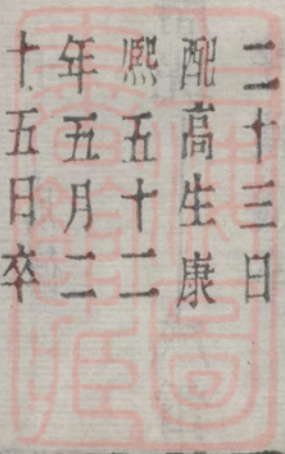 二十三日
配高生康
熙五十二
年五月二
十五日卒